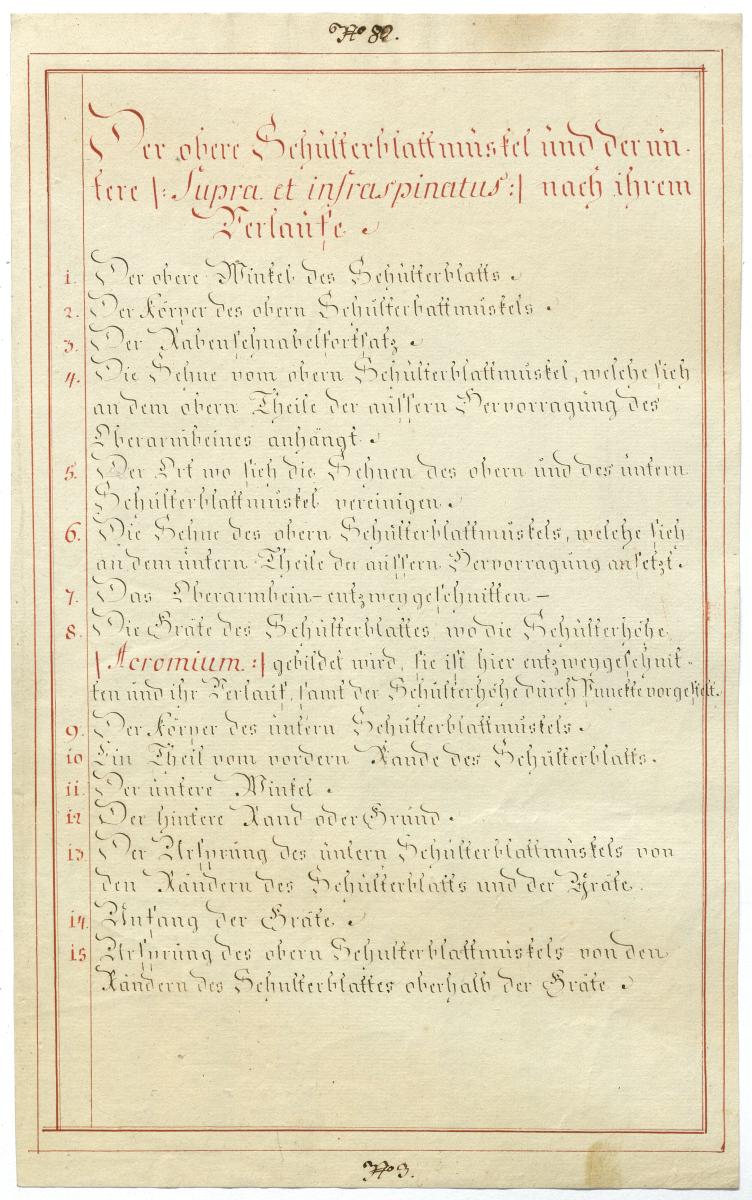 No 82.
Der obere Schulterblattmuskel und der un-
tere |: Supra. et infraspinatus :| nach ihrem
Verlaufe.
1. Der obere Winkel des Schulterblatts.
2. Der Körper des obern Schulterbattmuskels.
3. Der Rabenschnabelfortsatz.
4. Die Sehne vom obern Schulterblattmuskel, welche sich
an dem obern Theile der äussern Hervorragung des
Oberarmbeines anhängt.
5. Der Ort wo sich die Sehnen des obern und des untern
Schulterblattmuskel vereinigen.
6. Die Sehne des obern Schulterblattmuskels, welche sich
an dem untern Theile der äussern Hervorragung ansetzt.
7. Das Oberarmbein – entzweygeschnitten –
8. Die Gräte des Schulterblattes, wo die Schulterhöhe
|: Acromium :| gebildet wird, sie ist hier entzweygeschnit-
ten und ihr Verlauf, samt der Schulterhöhe durch Punckte vorgestelt.
9. Der Körper des untern Schulterblattmuskels.
10 Ein Theil vom vordern Rande des Schulterblatts.
11. Der untere Winkel.
12 Der hintere Rand oder Grund.
13. Der Ursprung des untern Schulterblattmuskels von
den Rändern des Schulterblatts und der Gräte.
14. Anfang der Gräte.
15 Ursprung des obern Schulterblattmuskels von den
Rändern des Schulterblattes oberhalb der Gräte.
No 3.